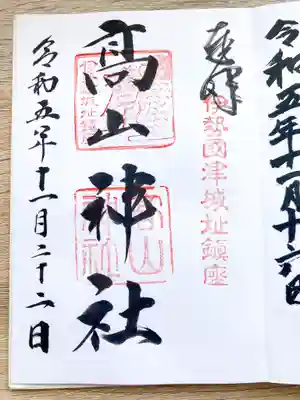 令和五年十一月十六日
奉拝
伊勢國津城址鎮座
高山神社
令和五年十一月二十二日